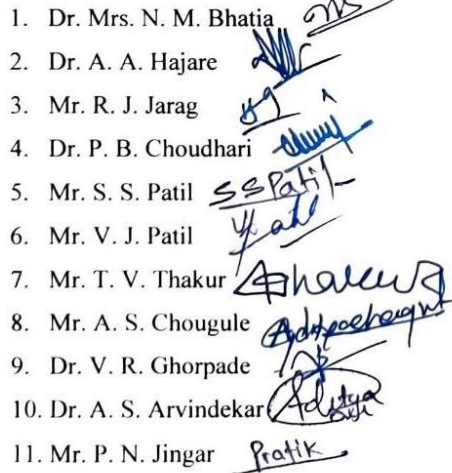 1. Dr. Mrs. N. M. Bhatia
2. Dr. A. A. Hajare
3. Mr. R. J. Jarag
4. Dr. P. B. Choudhari
5. Mr. S. S. Patil SSPatil
6. Mr. V. J. Patil
7. Mr. T. V. Thakur
8. Mr. A. S. Chougule
9. Dr. V. R. Ghorpade
10. Dr. A. S. Arvindekar Aditya
11. Mr. P. N. Jingar Pratik